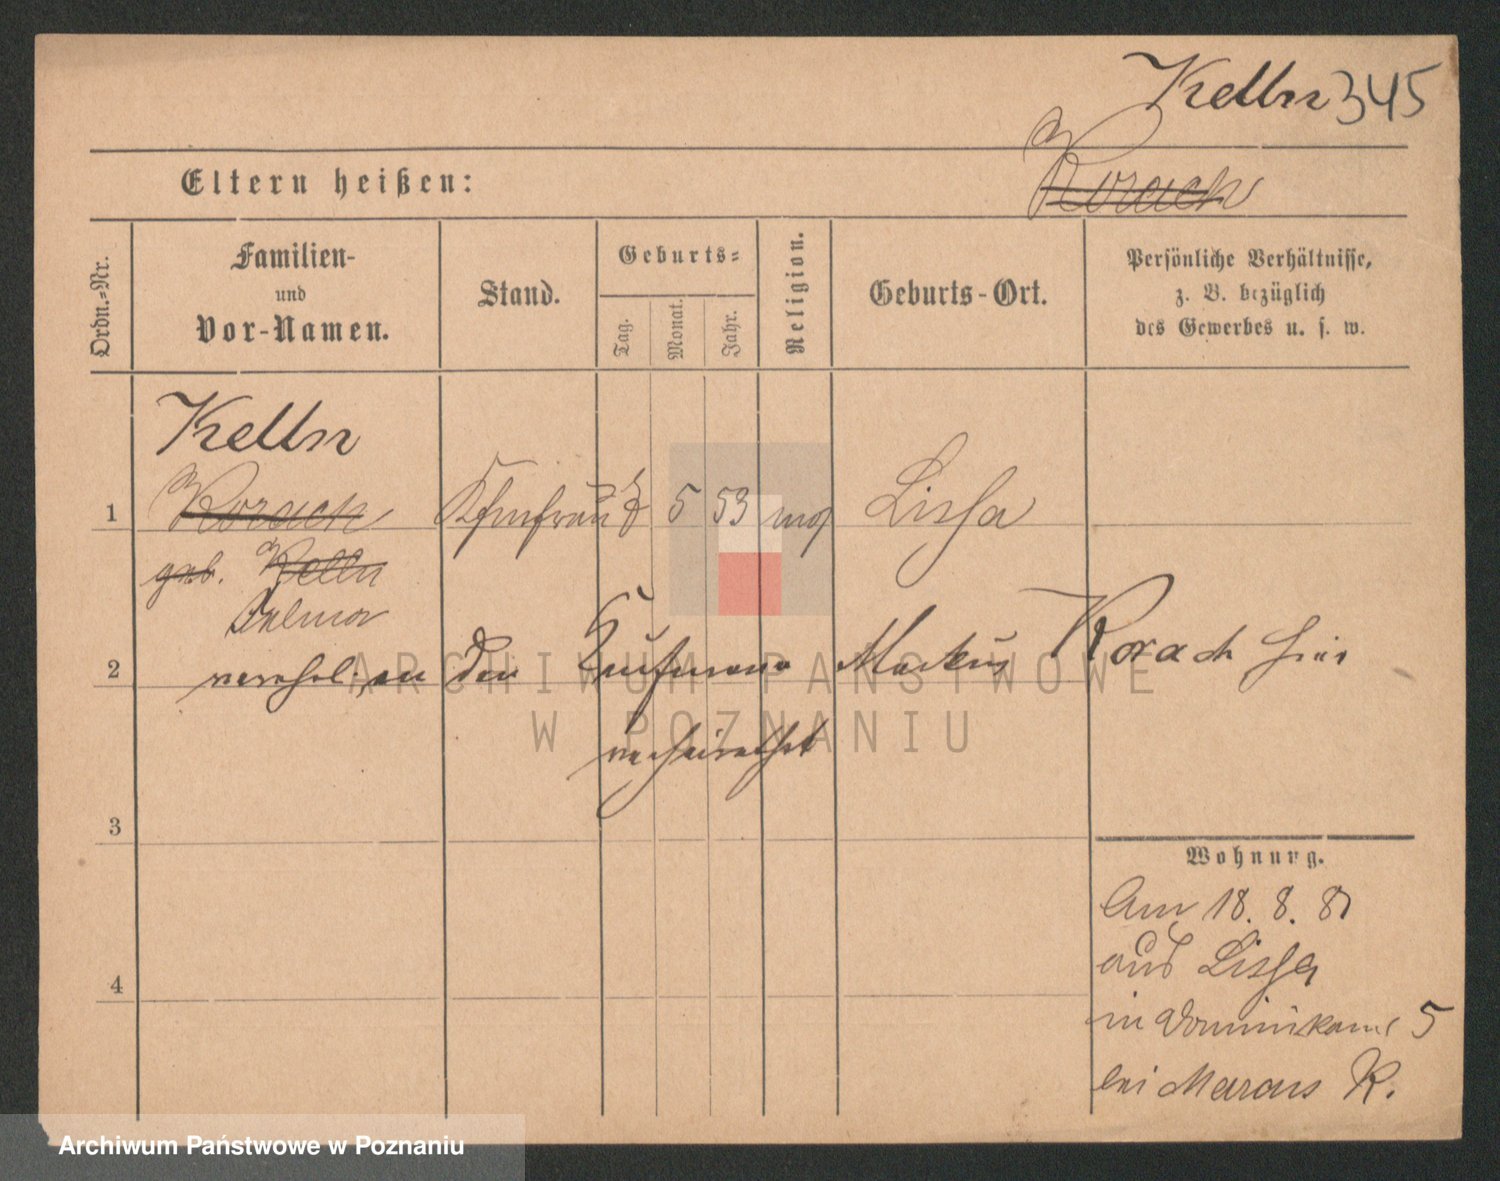 Keller 345
Eltern heißen:
Korach
Ordn.=Nr.
Familien-
und
Vor-Namen.
Stand.
Geburts=
Tag.
Monat.
Jahr.
Religion.
Geburts-Ort.
Persönliche Verhältnisse,
z. B. bezüglich
des Gewerbes u. s. w.
Keller
1 Korach Kfmfrau 5 53 mos Lissa
geb. Keller
2 verehel. an den Kaufmann Markus Korach hier
verheirathet
ARCHIWUM PAŃSTWOWE
W POZNANIU
3
Wohnung.
Am 18. 8. 81
aus Lissa
4
in Dominikaner 5
bei Marcus K.
Archiwum Państwowe w Poznaniu